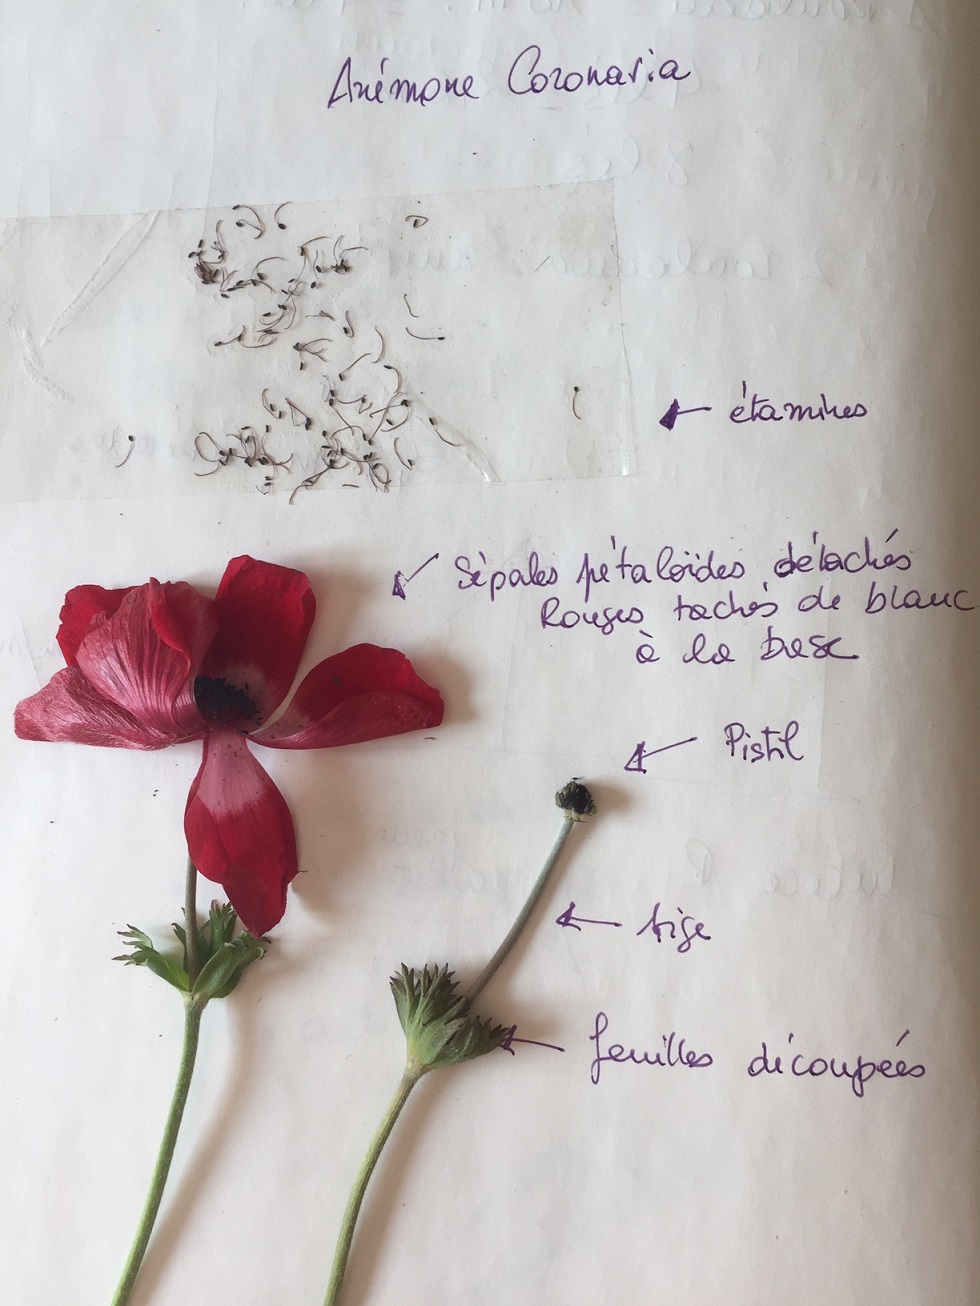 Anémone Coronaria
étamines
Sépales pétaloïdes, détachés
Rouges tachés de blanc
à la base
Pistil
tige
feuilles découpées